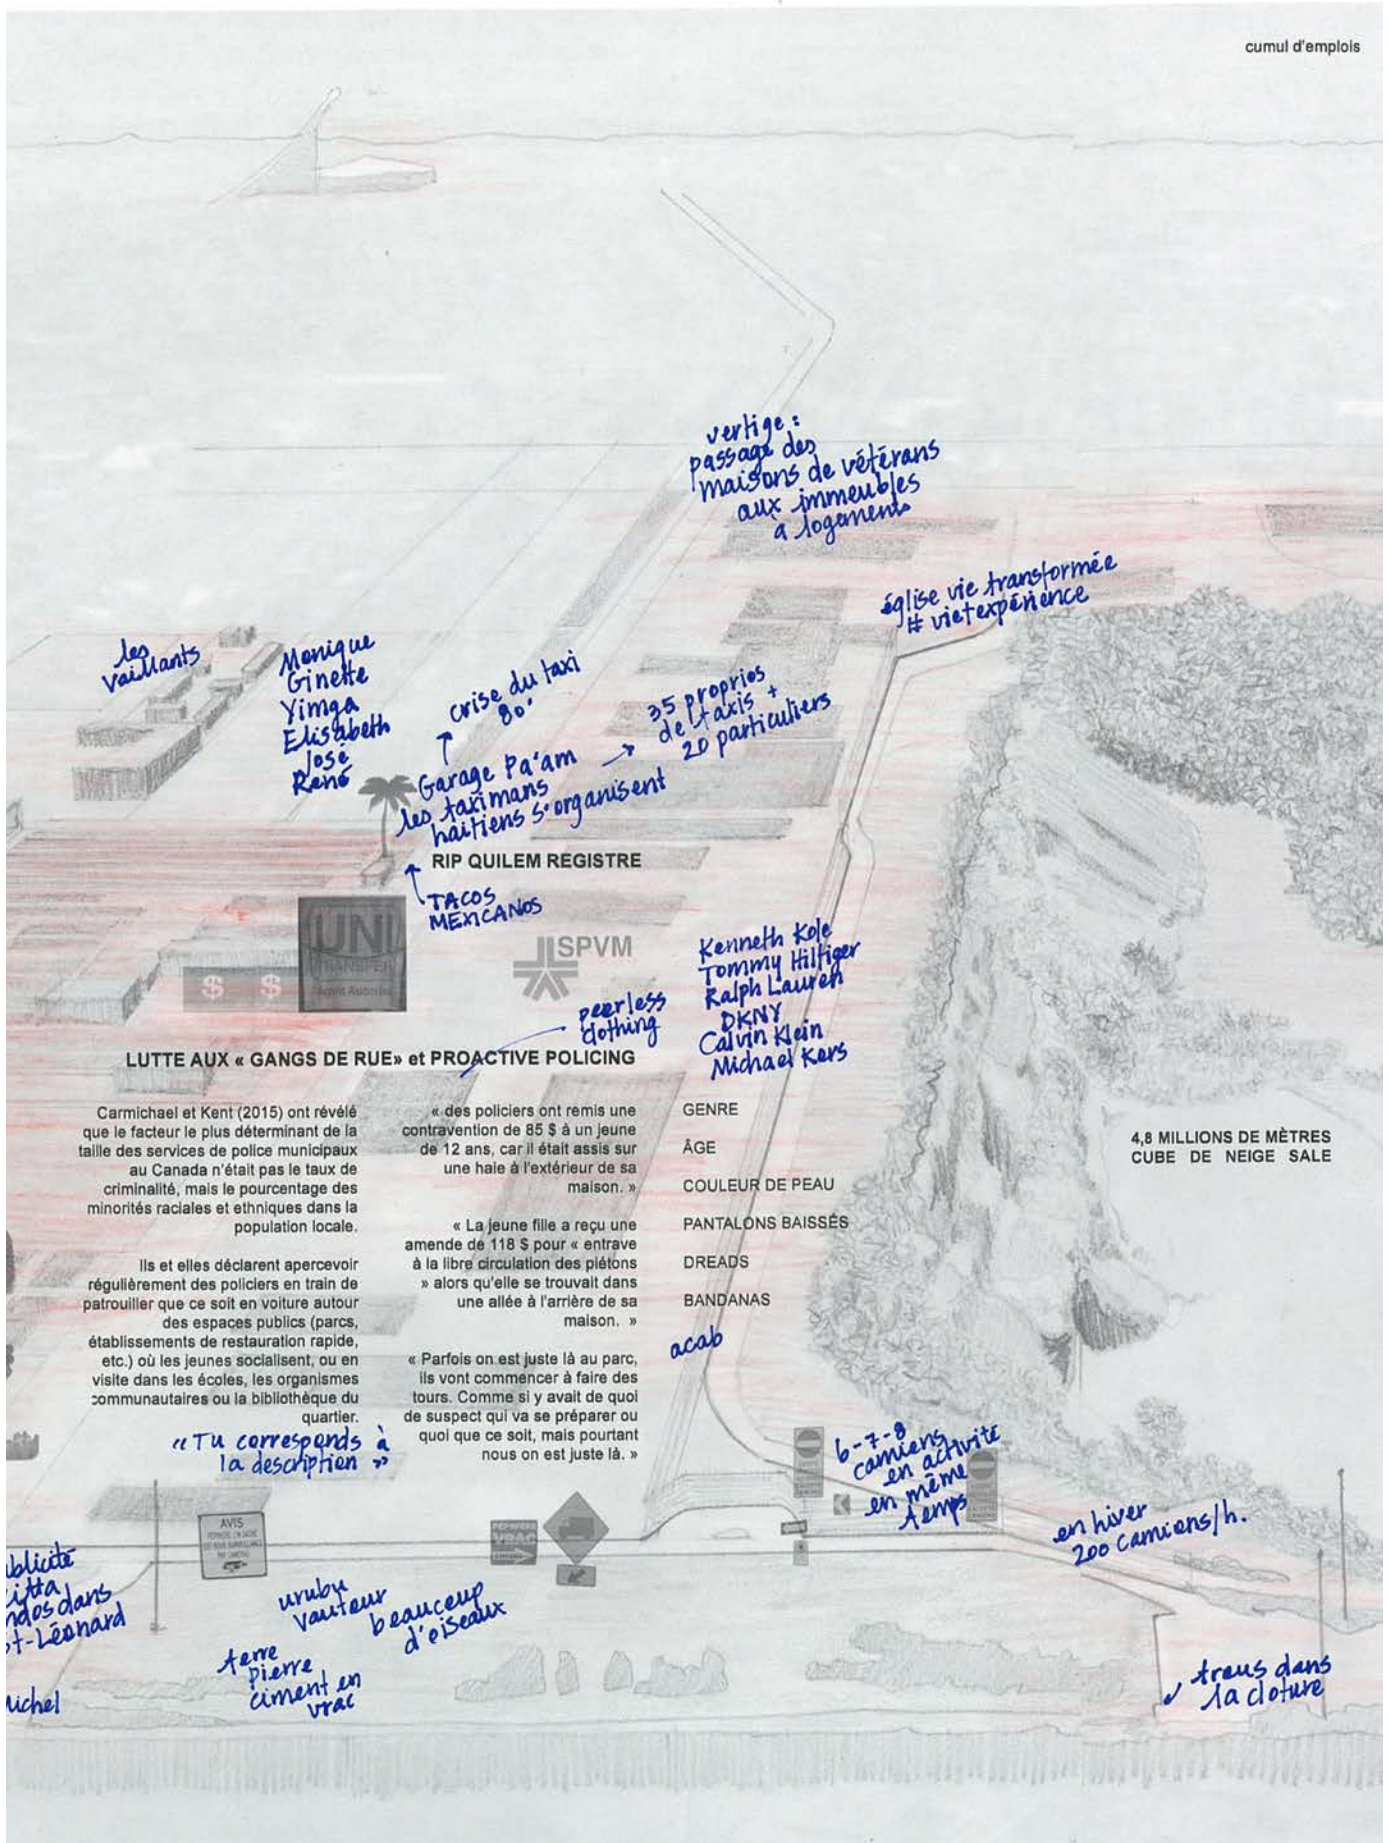 cumul d'emplois
vertige :
passage des
maisons de vétérans
aux immeubles
à logements
église vie transformée
# vietexpérience
les
vaillants
Monique
Ginette
Yimga
Elisabeth
José
René
crise du taxi
80'
35 proprios
de taxis +
20 particuliers
Garage Pa'am
les taximans
haïtiens s'organisent
RIP QUILEM REGISTRE
TACOS
MEXICANOS
UNI
TRANSFER
Agent Autorisé
$ $
SPVM
peerless
clothing
Kenneth Kole
Tommy Hilfiger
Ralph Lauren
DKNY
Calvin Klein
Michael Kors
LUTTE AUX « GANGS DE RUE» et PROACTIVE POLICING
Carmichael et Kent (2015) ont révélé
que le facteur le plus déterminant de la
taille des services de police municipaux
au Canada n'était pas le taux de
criminalité, mais le pourcentage des
minorités raciales et ethniques dans la
population locale.
Ils et elles déclarent apercevoir
régulièrement des policiers en train de
patrouiller que ce soit en voiture autour
des espaces publics (parcs,
établissements de restauration rapide,
etc.) où les jeunes socialisent, ou en
visite dans les écoles, les organismes
communautaires ou la bibliothèque du
quartier.
« Tu corresponds à
la description »
« des policiers ont remis une
contravention de 85 $ à un jeune
de 12 ans, car il était assis sur
une haie à l'extérieur de sa
maison. »
« La jeune fille a reçu une
amende de 118 $ pour « entrave
à la libre circulation des piétons
» alors qu'elle se trouvait dans
une allée à l'arrière de sa
maison. »
« Parfois on est juste là au parc,
ils vont commencer à faire des
tours. Comme si y avait de quoi
de suspect qui va se préparer ou
quoi que ce soit, mais pourtant
nous on est juste là. »
GENRE
ÂGE
COULEUR DE PEAU
PANTALONS BAISSÉS
DREADS
BANDANAS
acab
4,8 MILLIONS DE MÈTRES
CUBE DE NEIGE SALE
6-7-8
camions
en activité
en même
temps
en hiver
200 camions/h.
AVIS
VRAC
urubu
vautour
beaucoup
d'oiseaux
terre
pierre
ciment en
vrac
trous dans
la cloture
blicité
itta
ndos dans
st-Léonard
ichel